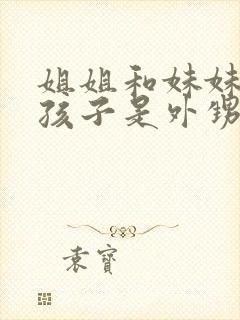 姐姐和妹妹
孩子是外甥
袁寳